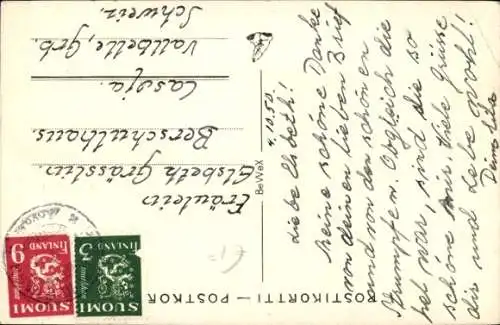 4.10.50.
Liebe Elsbeth!
Meine schöne Danke
von deinen lieben Brief
und von den schönen
Strumpfen. Obgleich die
war, sind die so
schöne mir. Viele Grüsse
dir und Lebe wohl!
BeWeX
POSTIKORTTI — POSTKOR
Fräulein
Elsbeth Grässlin
Berschulhaus
Casoja
Vallbelle, Grb.
Schweiz.
SUOMI
3
FINLAND
SUOMI
9
FINLAND